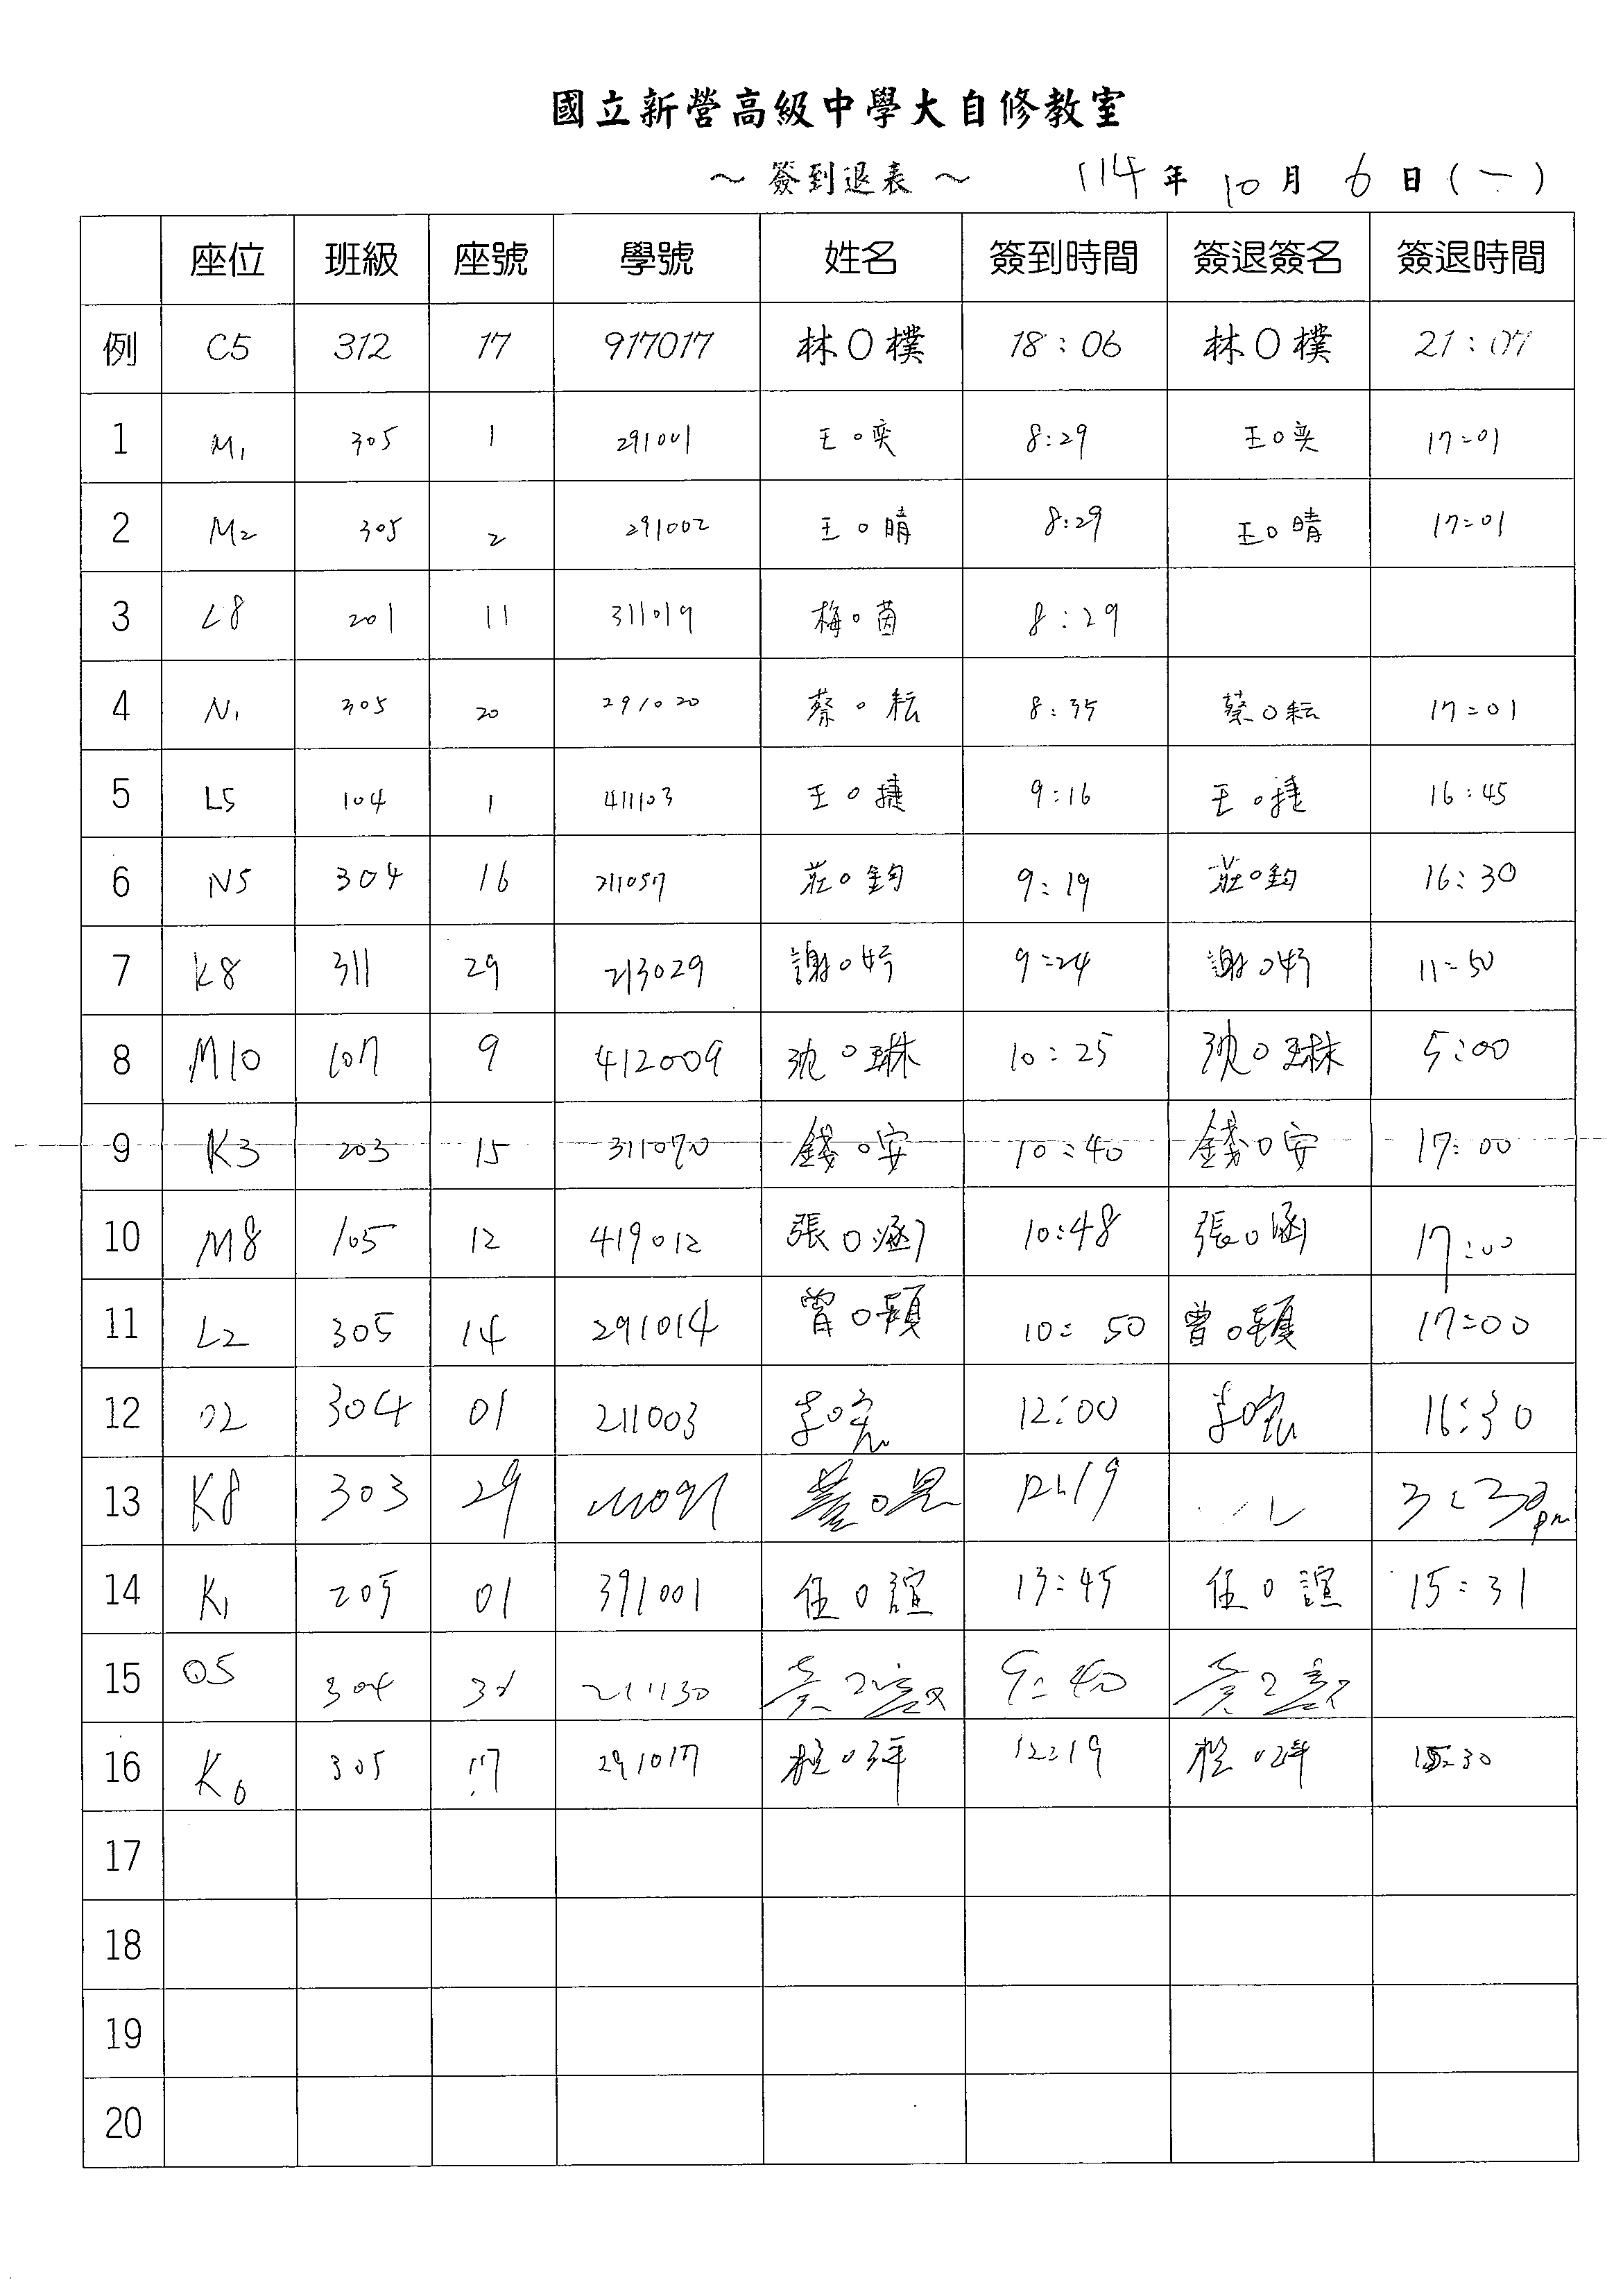 國立新營高級中學大自修教室
～ 簽到退表 ～ 114 年 10 月 6 日 (一)
座位 班級 座號 學號 姓名 簽到時間 簽退簽名 簽退時間
例 C5 312 17 917017 林O樸 18:06 林O樸 21:07
1 M1 305 1 291001 王O奕 8:29 王O奕 17:01
2 M2 305 2 291002 王O晴 8:29 王O晴 17:01
3 L8 201 11 311019 梅O茵 8:29
4 N1 305 20 291020 蔡O耘 8:35 蔡O耘 17:01
5 L5 104 1 411103 王O捷 9:16 王O捷 16:45
6 N5 304 16 211057 莊O鈞 9:19 莊O鈞 16:30
7 K8 311 29 213029 謝O妤 9:24 謝O妤 11:50
8 M10 107 9 412009 沈O琳 10:25 沈O琳 5:00
9 K3 203 15 311070 錢O安 10:40 錢O安 17:00
10 M8 105 12 419012 張O涵 10:48 張O涵 17:00
11 L2 305 14 291014 曾O穎 10:50 曾O穎 17:00
12 O2 304 01 211003 李O宏 12:00 李O宏 16:30
13 K8 303 29 O 12:19 3:30pm
14 K1 205 01 391001 任O誼 13:45 任O誼 15:31
15 O5 304 211130 9:40
16 K6 305 17 291017 O 12:19 O 15:30
17
18
19
20